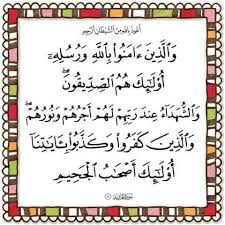 أعوذ بالله من الشيطان الرجيم
وَالَّذِينَ ءَامَنُوا۟ بِٱللَّهِ وَرُسُلِهِۦٓ
أُو۟لَٰٓئِكَ هُمُ ٱلصِّدِّيقُونَ ۖ
وَٱلشُّهَدَآءُ عِندَ رَبِّهِمْ لَهُمْ أَجْرُهُمْ وَنُورُهُمْ ۖ
وَٱلَّذِينَ كَفَرُوا۟ وَكَذَّبُوا۟ بِـَٔايَٰتِنَآ
أُو۟لَٰٓئِكَ أَصْحَٰبُ ٱلْجَحِيمِ